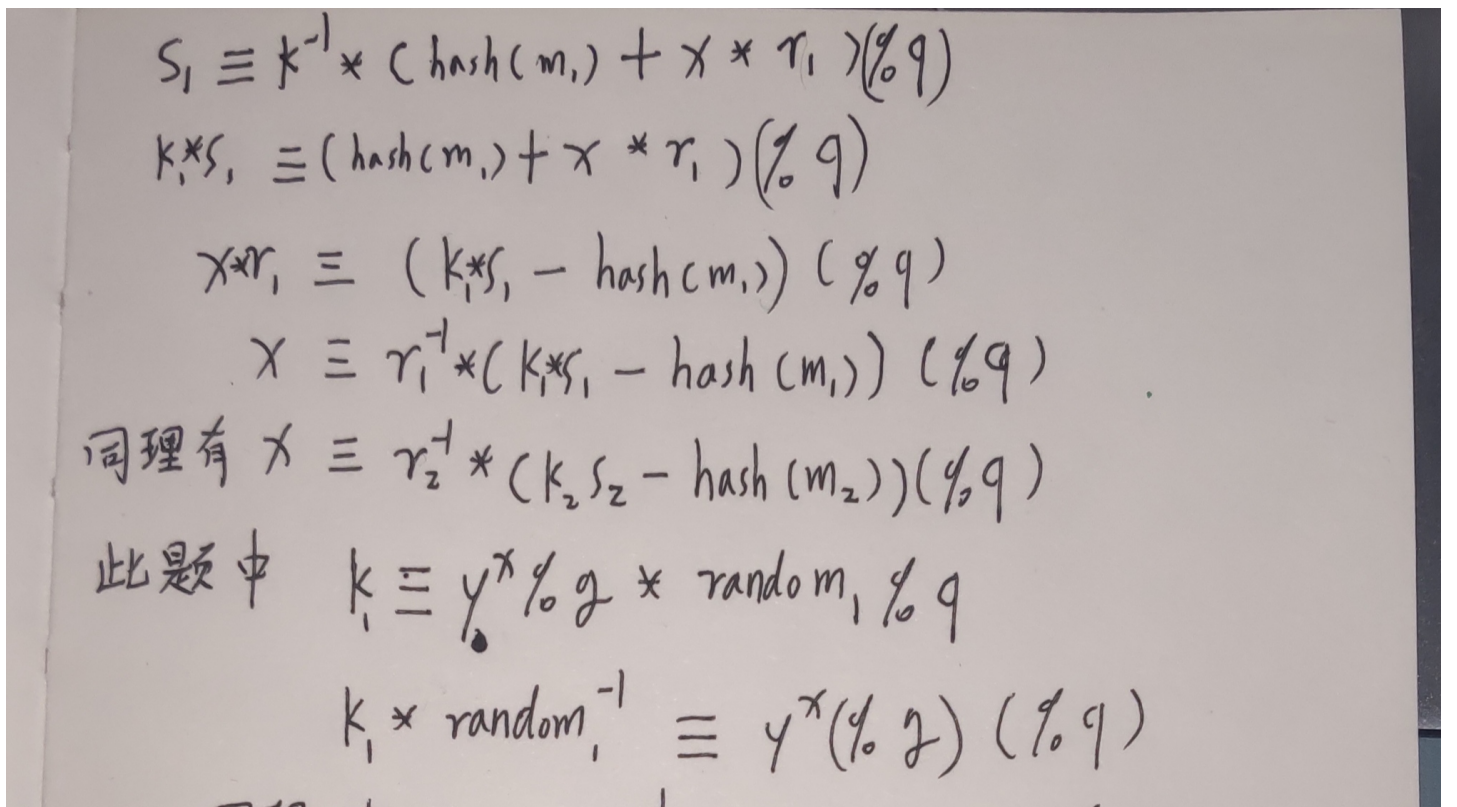 S₁ ≡ k⁻¹ * ( hash(m₁) + x * r₁ )(% q)
k₁*S₁ ≡ ( hash(m₁) + x * r₁ ) (% q)
x*r₁ ≡ ( k₁*S₁ − hash(m₁)) ( % q )
x ≡ r₁⁻¹ *( k₁*S₁ − hash (m₁)) ( % q )
同理有 x ≡ r₂⁻¹ * (k₂ S₂ − hash (m₂))(% q )
此题中 k₁ ≡ yˣ % g * random₁ % q
k₁ * random₁⁻¹ ≡ yˣ (% g) (% q )